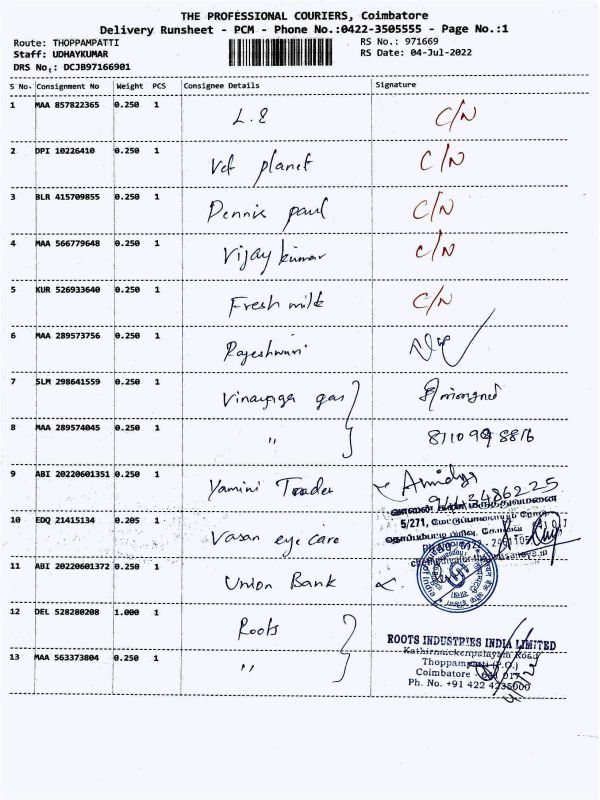 THE PROFESSIONAL COURIERS, Coimbatore
Delivery Runsheet - PCM - Phone No.:0422-3505555 - Page No.:1
Route: THOPPAMPATTI RS No.: 971669
Staff: UDHAYKUMAR RS Date: 04-Jul-2022
DRS No.: DCJB97166901
S No. Consignment No Weight PCS Consignee Details Signature
1 MAA 857822365 0.250 1 L.E C/N
2 DPI 10226410 0.250 1 Vet planet C/N
3 BLR 415709855 0.250 1 Dennis paul C/N
4 MAA 566779648 0.250 1 Vijay kumar C/N
5 KUR 526933640 0.250 1 Fresh milk C/N
6 MAA 289573756 0.250 1 Rajeshwari
7 SLM 298641559 0.250 1 Vinayaga gas
8 MAA 289574045 0.250 1 "
9 ABI 20220601351 0.250 1 Yamini Trader
9443486225
5/271,
10 EDQ 21415134 0.205 1 Vasan eye care
11 ABI 20220601372 0.250 1 Union Bank
12 DEL 528280208 1.000 1 Roots
ROOTS INDUSTRIES INDIA LIMITED
13 MAA 563373804 0.250 1 "
Thoppampatti (P.O.)
Coimbatore - 641 017
Ph. No. +91 422 4235000